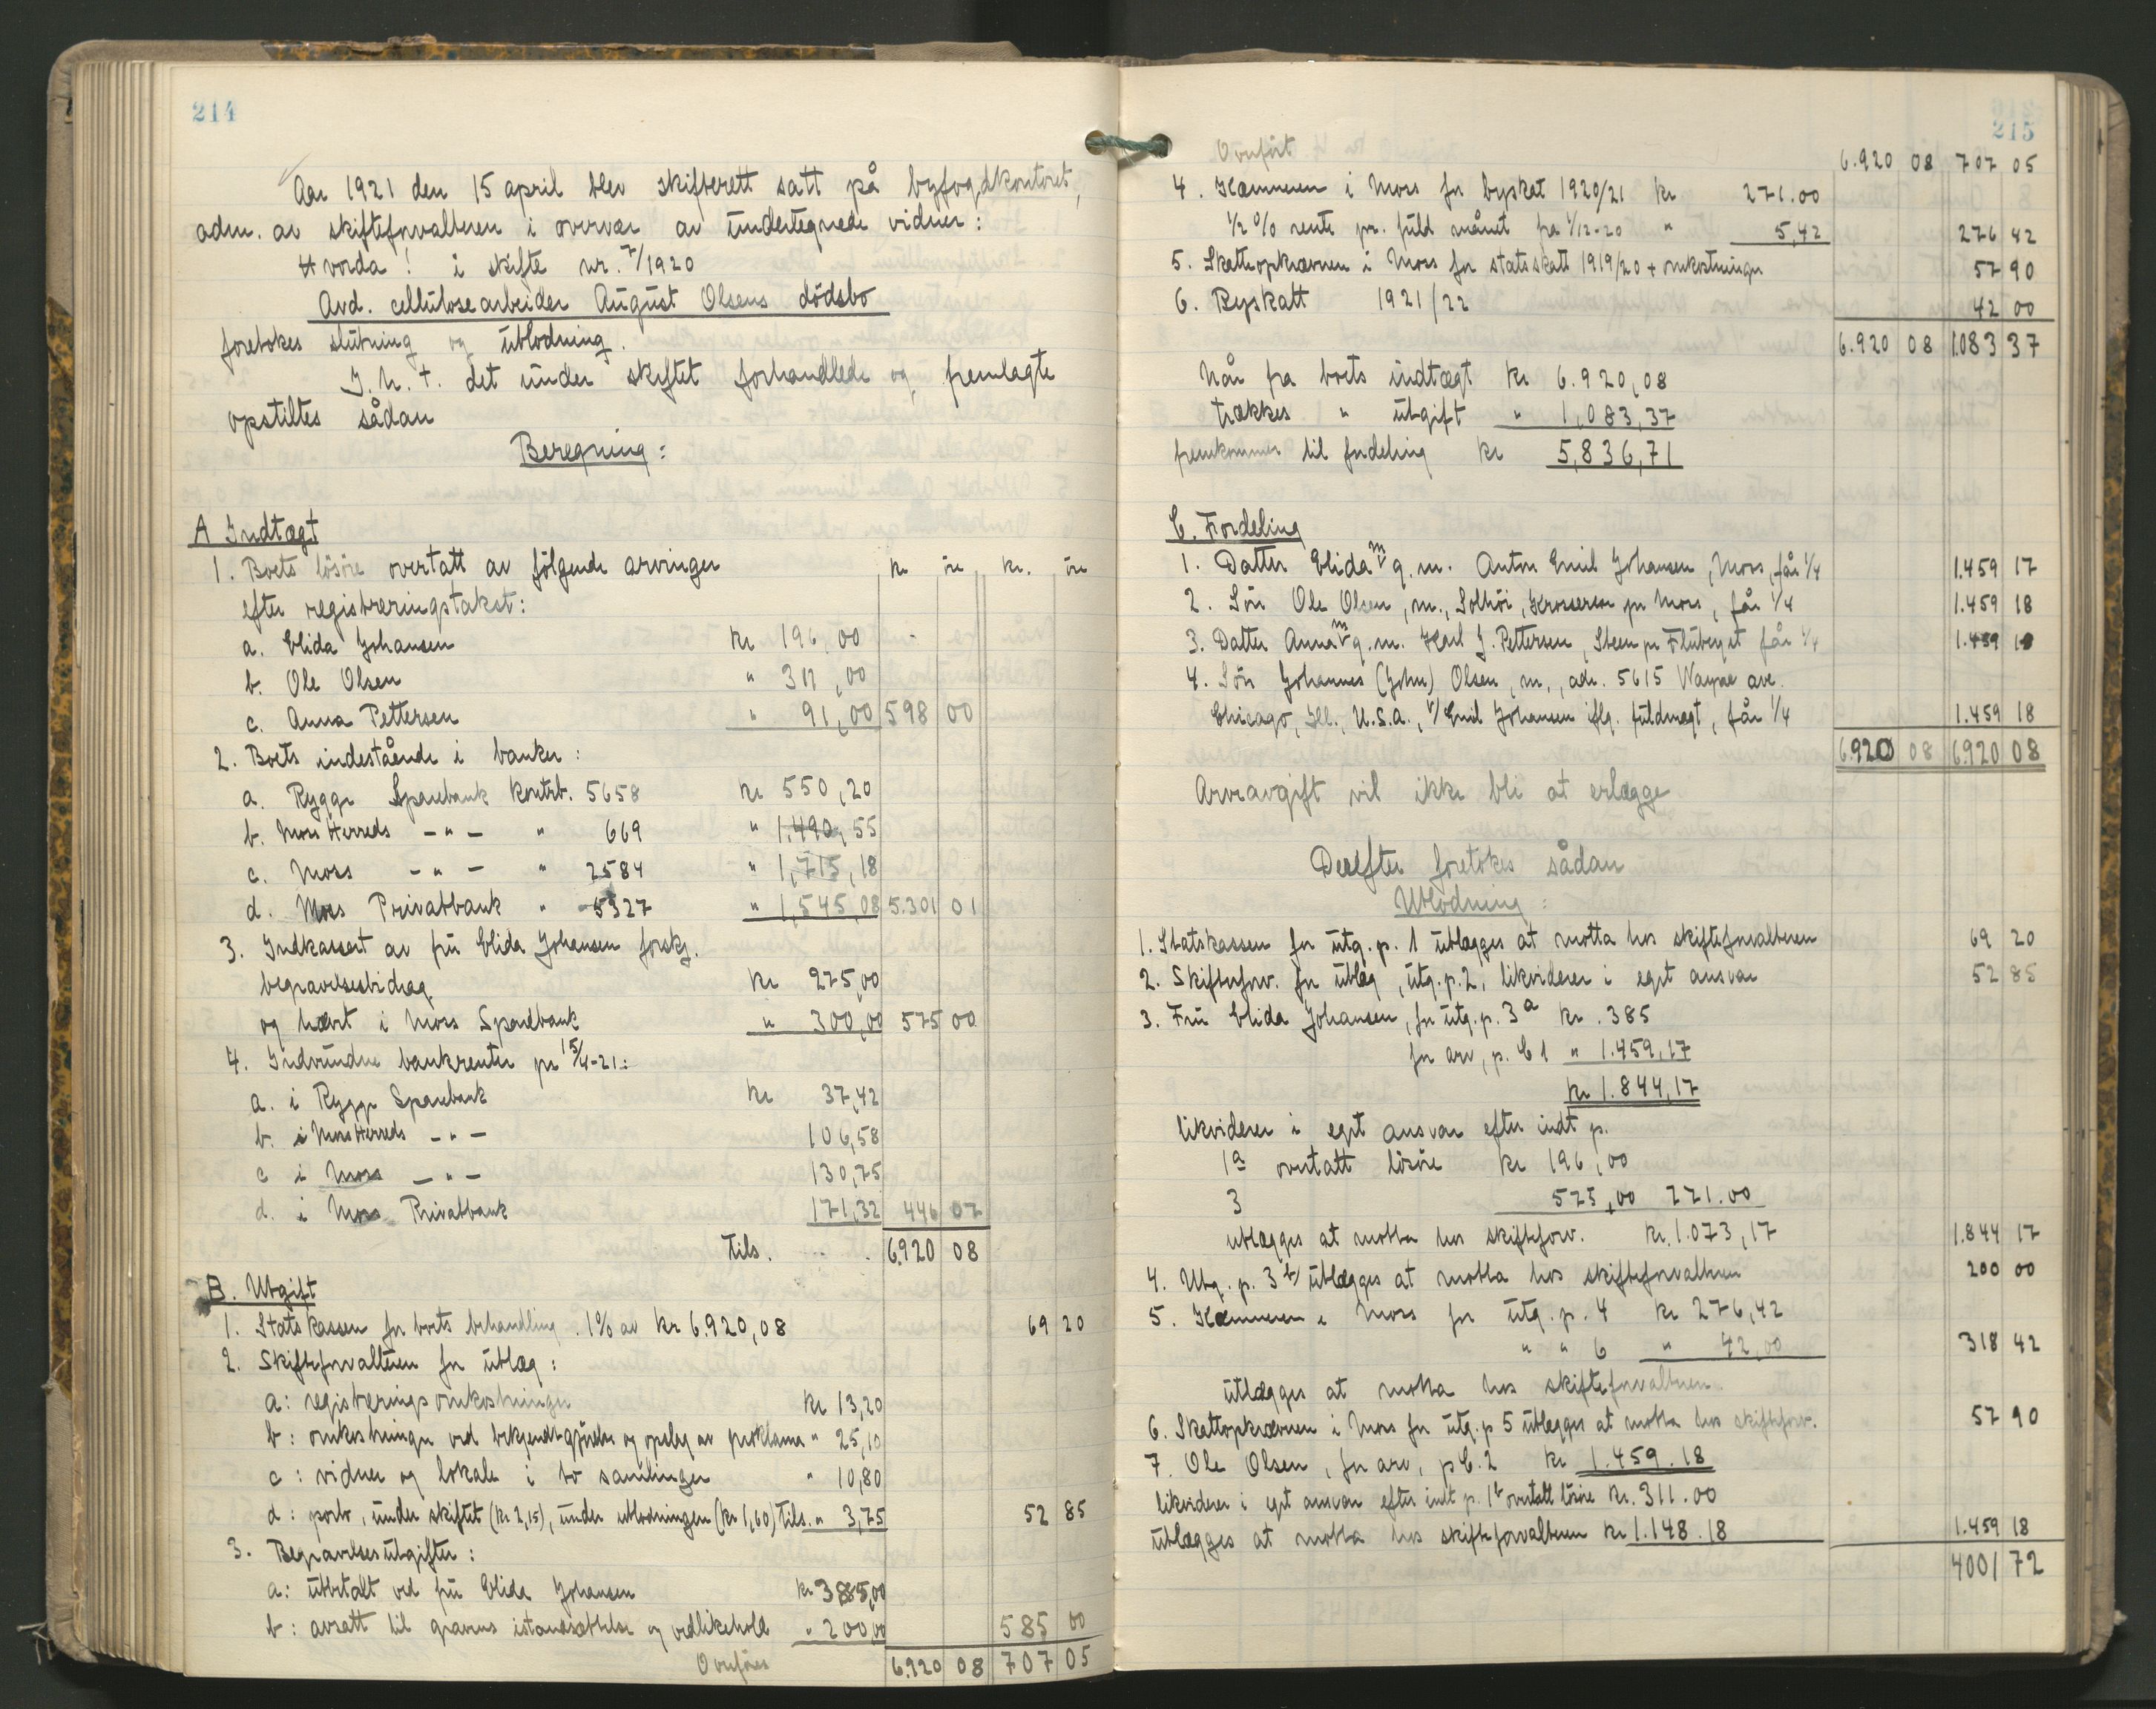 214
Aar 1921 den 15 april blev skifterett satt på byfogdkontoret,
adm. av skifteforvalteren i overvær av undertegnede vidner:
Hvorda! i skifte nr. 7/1920
Avd. cellulosearbeider August Olsens dödsbo
foretokes slutning og utlodning.
I. h. t. det under skiftet forhandlede og fremlagte
opstiltes sådan
Beregning:
A Indtægt
1. Boets lösöre overtatt av fölgende arvinger kr öre kr. öre
efter registreringstakst:
a. Elida Johansen kr 196,00
b. Ole Olsen " 311,00
c. Anna Pettersen " 91,00 598 00
2. Boets indestående i banker:
a. Rygge Sparebank kontrb. 5658 kr 550,20
b. Moss Herreds -"- " 669 " 1.490,55
c. Moss -"- " 2584 " 1,715,18
d. Moss Privatbank " 5327 " 1,545,08 5.301 01
3. Indkassert av fru Elida Johansen forskj.
begravelsesbidrag kr 275,00
og hævt i Moss Sparebank " 300,00 575 00
4. Indvundne bankrenter pr 15/4-21:
a. i Rygge Sparebank kr 37,42
b. i Moss Herreds -"- 106,58
c i Moss -"- 130,75
d. i Moss Privatbank 171,32 446 07
Tils. . . . 6.920 08
B. Utgift
1. Statskassen for boets behandling 1% av kr 6.920,08 69 20
2. Skifteforvalteren for utlæg:
a: registreringsomkostninger kr 13,20
b: omkostninger ved bekjendtgjörelse og opslag av proklama " 25,10
c: vidner og lokale i to samlinger " 10,80
d: porto, under skiftet (kr 2,15), under utlodningen (kr 1,60) tils. " 3,75 52 85
3. Begravelsesutgifter:
a: utbetalt ved fru Elida Johansen kr 385,00
b: avsatt til gravens istandsættelse og vedlikehold " 200,00 585 00
Overföres 6.920 08 707 05
215
Overfört 6.920 08 707 05
4. Kæmneren i Moss for byskat 1920/21 kr 271.00
1/2 % rente pr. fuld måned fra 1/12-20 " 5,42 276 42
5. Skatteopkræveren i Moss for statsskatt 1919/20 + omkostninger 57 90
6. Byskatt 1921/22 42 00
6.920 08 1.083 37
Når fra boets indtægt kr 6.920,08
trækkes " utgift " 1,083,37
fremkommer til fordeling kr 5,836,71
C. Fordeling
1. Datter Elida m g.m. Anton Emil Johansen, Moss, får 1/4 1.459 17
2. Sön Ole Olsen, m., Solhöi, Krosser pr Moss, får 1/4 1.459 18
3. Datter Anna m g.m. Karl J. Pettersen, Steen pr Fluberget får 1/4 1.459 18
4. Sön Johannes (John) Olsen, m., adr. 5615 Wayne ave.
Chicago, Ill. U.S.A., v/ Emil Johansen iflg. fuldmagt, får 1/4 1.459 18
6.920 08 6.920 08
Arveavgift vil ikke bli at erlægge
Derefter foretokes sådan
Utlodning:
1. Statskassen for utg. p. 1 utlægges at motta hos skifteforvalteren 69 20
2. Skifteforv. for utlæg, utg. p. 2, likviderer i eget ansvar 52 85
3. Fru Elida Johansen, for utg. p. 3a kr. 385
for arv, p. C 1 " 1.459,17
kr 1.844,17
likviderer i eget ansvar efter indt p.
1a overtatt lösöre kr 196,00
3 575,00 771.00
utlægges at motta hos skifteforv. kr. 1.073,17 1.844 17
4. Utg. p. 3b/ utlægges at motta hos skifteforvalteren 200 00
5. Kæmneren i Moss for utg. p. 4 kr 276,42
" " 6 " 42,00 318 42
utlægges at motta hos skifteforvalteren
6. Skatteopkræveren i Moss for utg. p 5 utlægges at motta hos skifteforv. 57 90
7. Ole Olsen, for arv, p C. 2 kr 1.459.18
likviderer i eget ansvar efter indt p. 1b overtatt lösöre kr. 311.00
utlægges at motta hos skifteforvalteren kr 1.148.18 1.459 18
4001 72